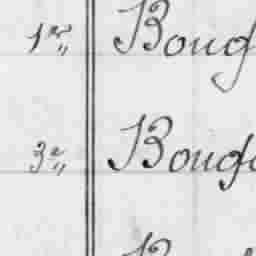 1er„ Boug
3e„ Boug